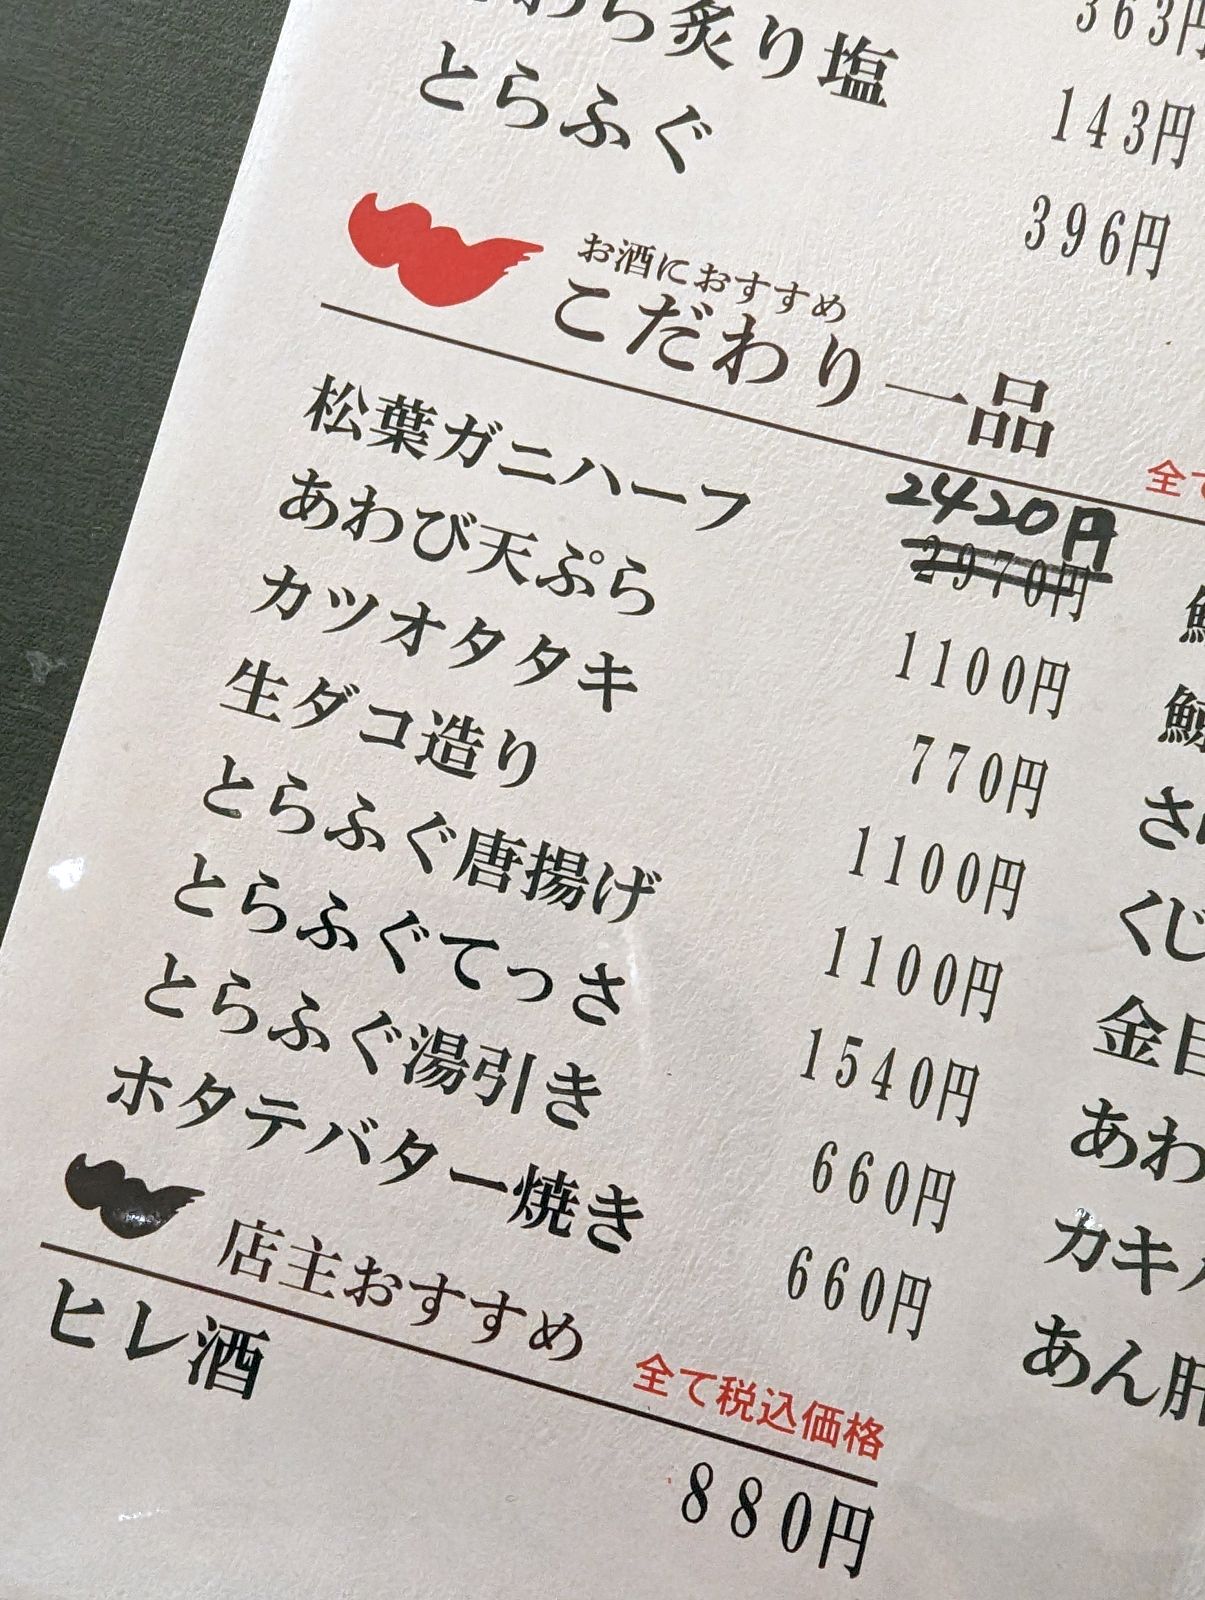 炙り塩 363円
とらふぐ 143円
396円
お酒におすすめ
こだわり一品
全て
松葉ガニハーフ 2420円
2970円
あわび天ぷら 1100円
カツオタタキ 770円
生ダコ造り 1100円
とらふぐ唐揚げ 1100円
とらふぐてっさ 1540円
とらふぐ湯引き 660円
ホタテバター焼き 660円
さ
くじ
金目
あわ
カキ
あん肝
店主おすすめ
全て税込価格
ヒレ酒 880円